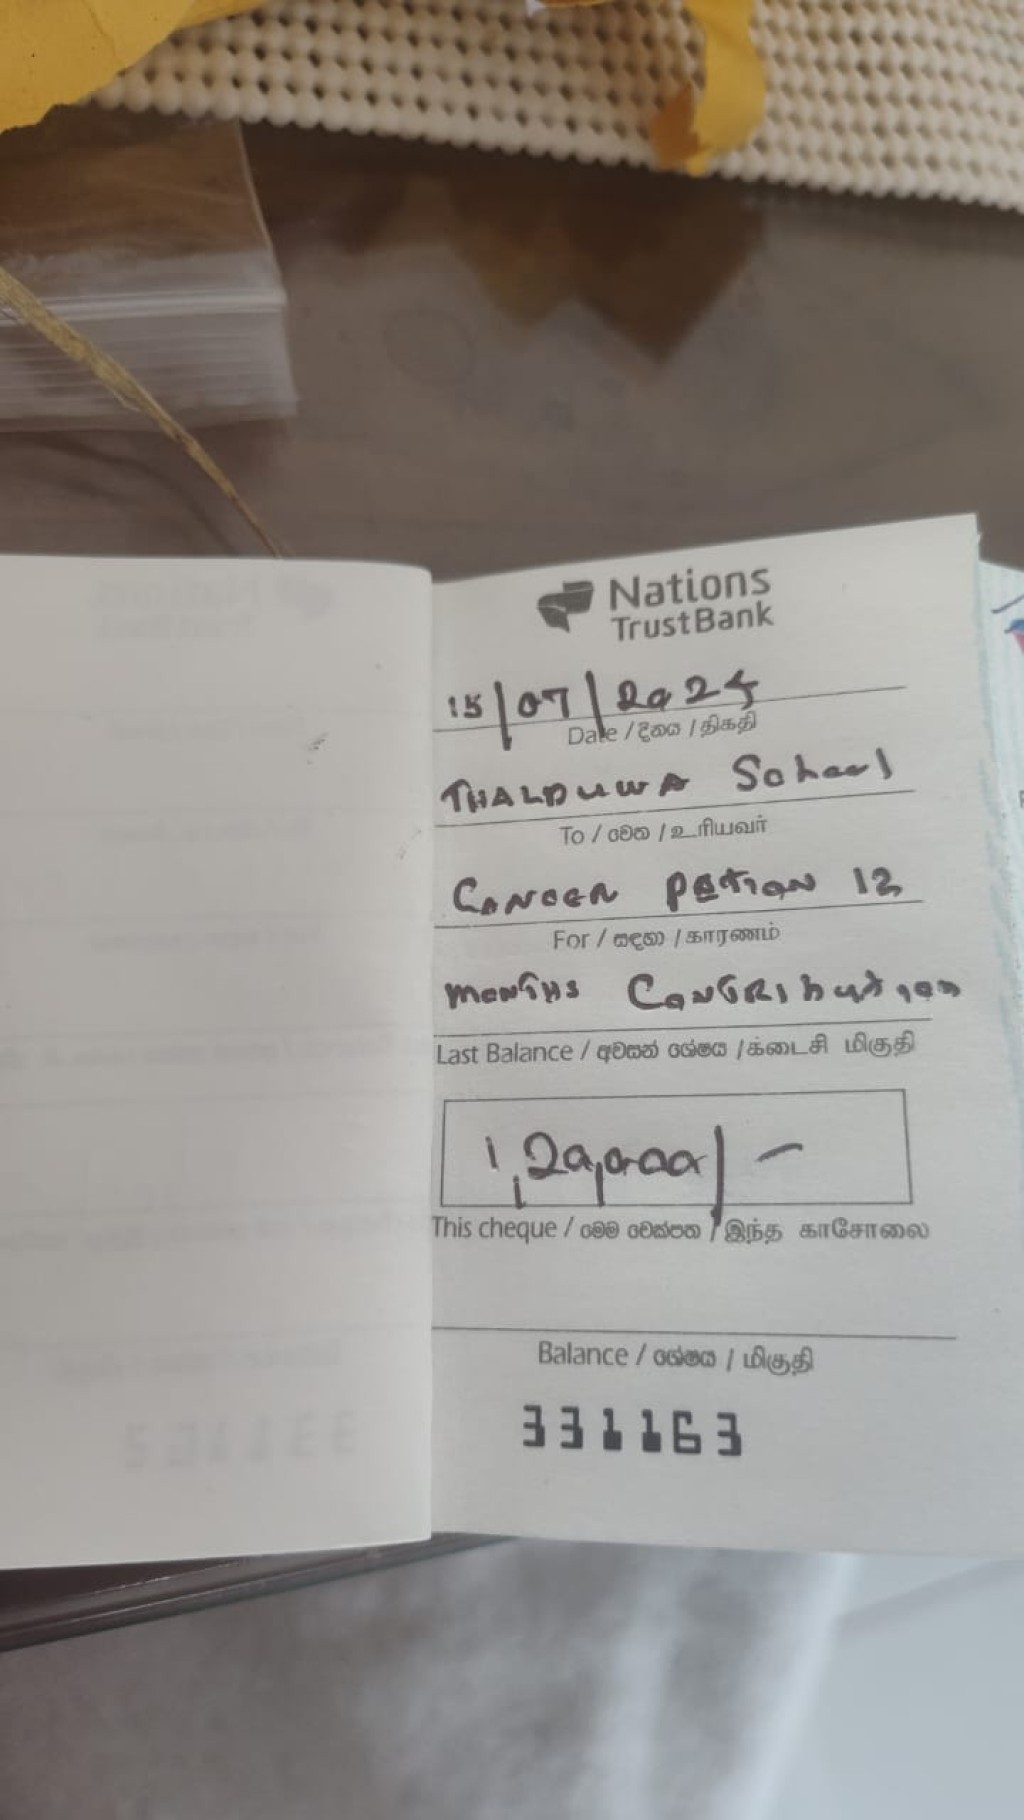 Nations
TrustBank
15/07/2024
Date / දිනය / திகதி
THALDUWA School
To / වෙත / உரியவர்
CANCER PETION 12
For / සඳහා / காரணம்
MONTHS CONTRIbution
Last Balance / අවසන් ශේෂය / க்டைசி மிகுதி
1,20,000/-
This cheque / මෙම චෙක්පත / இந்த காசோலை
Balance / ශේෂය / மிகுதி
331163